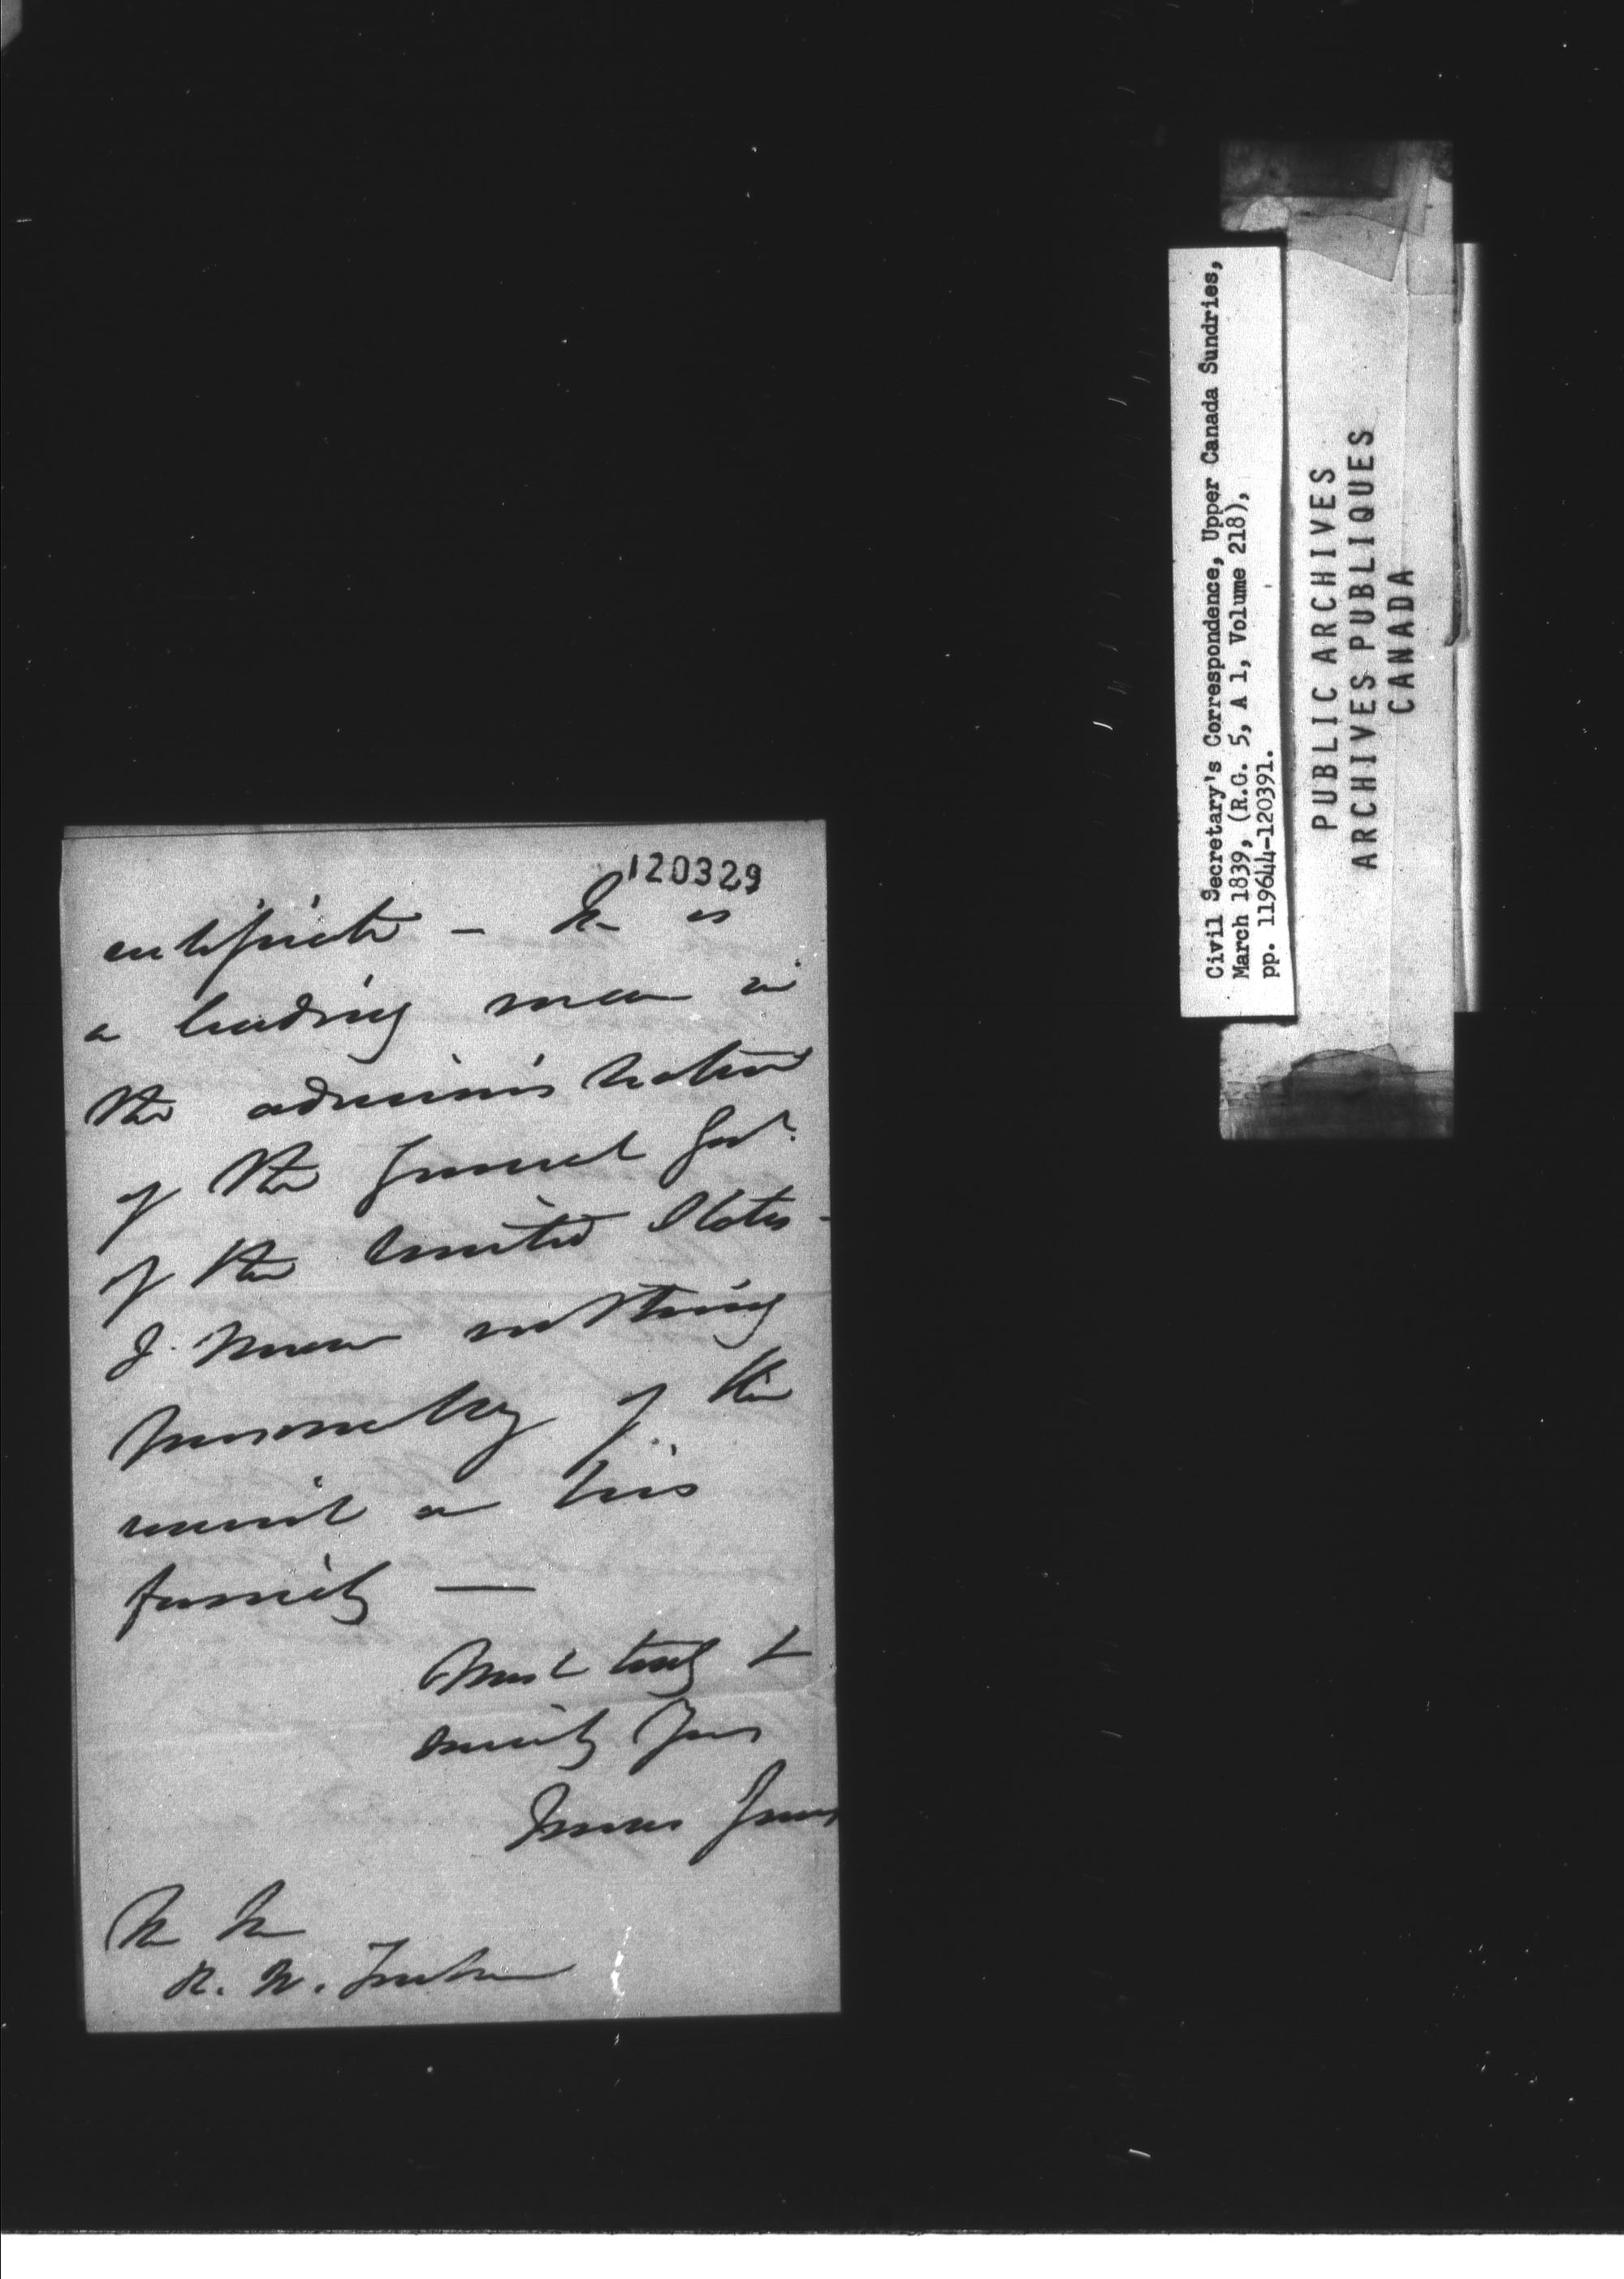 120329
certificate — He is
a leading man in
the administration
of the General Govt.
of the United States -
I know nothing
personally of the
or his
family —
Most truly &
Yours
R. W.
Civil Secretary's Correspondence, Upper Canada Sundries,
March 1839, (R.G. 5, A 1, Volume 218),
pp. 119644-120391.
PUBLIC ARCHIVES
ARCHIVES PUBLIQUES
CANADA